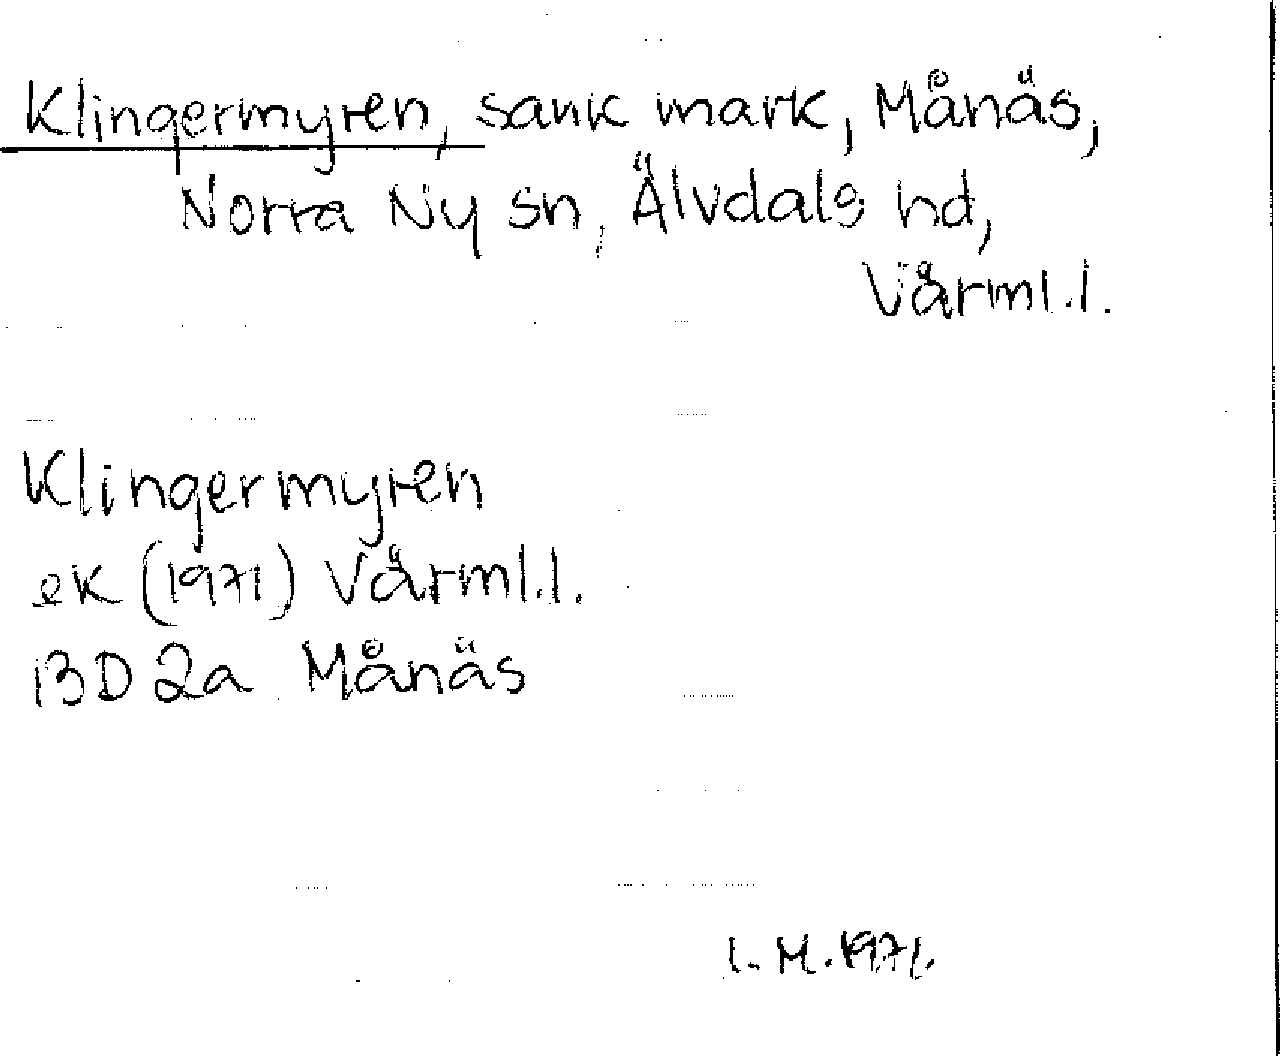 Klingermyren, sank mark, Månäs,
Norra Ny sn, Älvdals hd,
Värml.l.
Klingermyren
ek (1971) Värml.l.
13D 2a Månäs
I.M.1971.